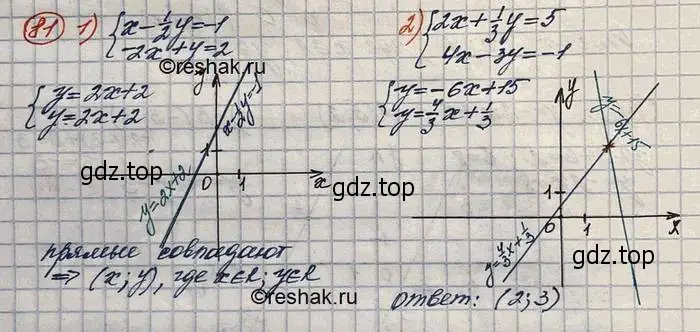 81 1) { x - 1/2 y = -1
-2x + y = 2
©reshak.ru
{ y = 2x+2
y = 2x+2
y
x - 1/2 y = -1
y = 2x+2
1
0 1 x
gdz.top
gdz.top
прямые совпадают
⇒ (x; y), где x∈R; y∈R
©reshak.ru
2) { 2x + 1/3 y = 5
4x - 3y = -1
{ y = -6x + 15
y = 4/3 x + 1/3
gdz.top
y
y = -6x+15
1
0 1 x
y = 4/3 x + 1/3
gdz.top
ответ: (2; 3)